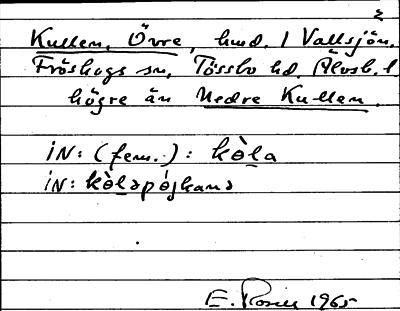 2
Kullen, Övre, hmd. / Vallsjön.
Fröskogs sn, Tössbo hd. Älvsb. l.
högre än Nedre Kullen.
iN: (fem.): kòla
iN: kòləpójkanə
E. Rosell 1965